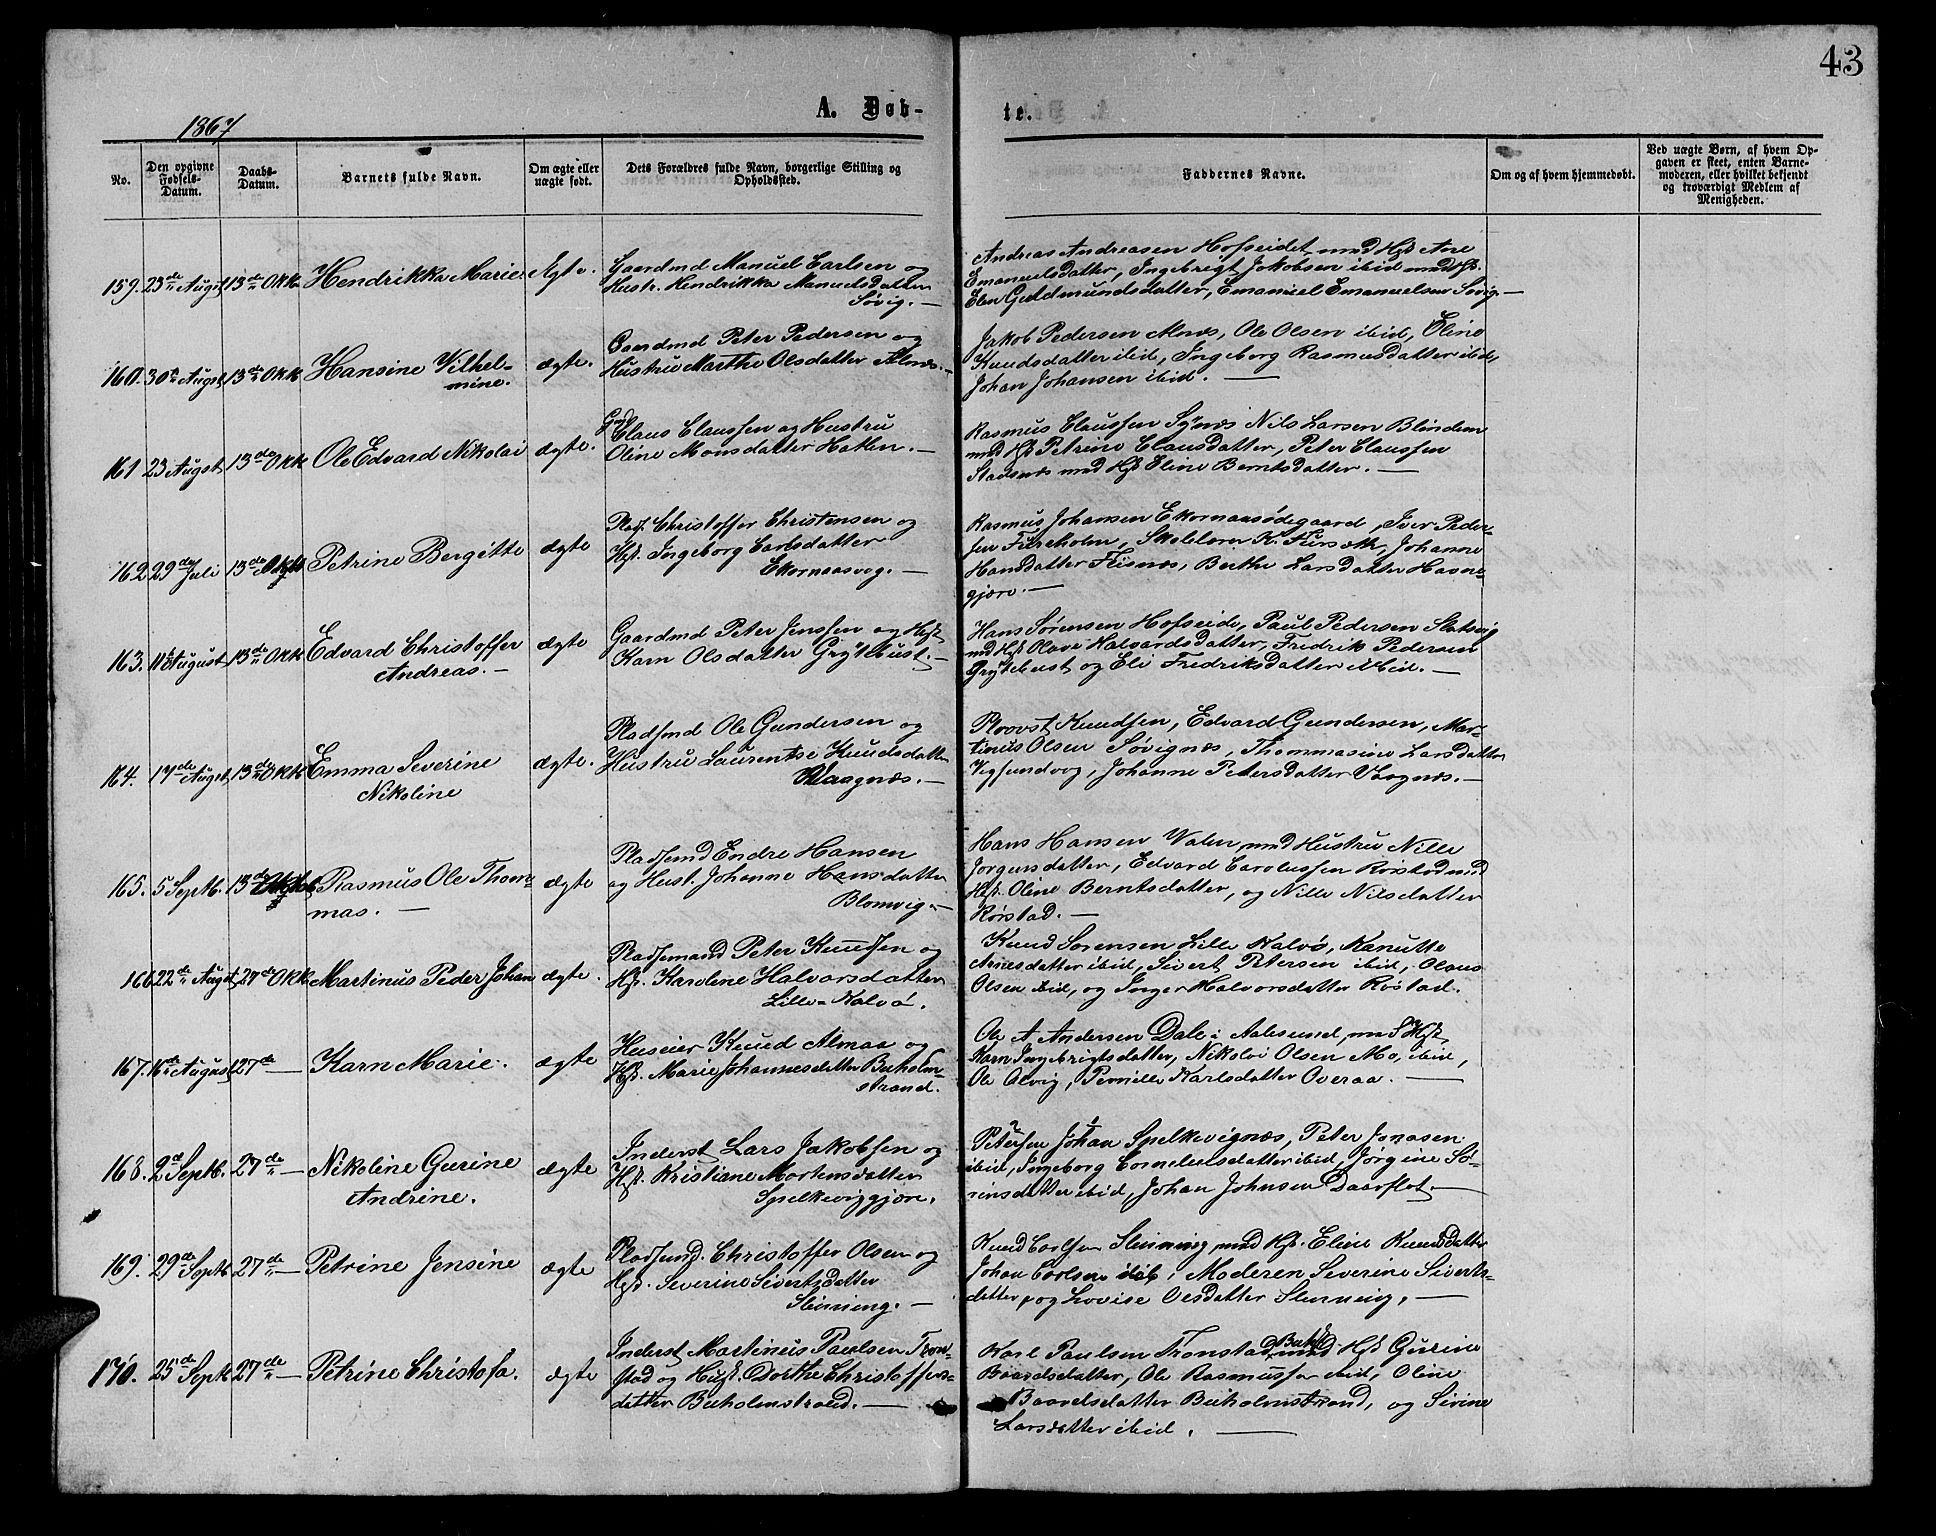 43
1867
A. Døb-
te.
No.
Den opgivne Fødsels-Datum.
Daabs-Datum.
Barnets fulde Navn.
Om ægte eller uægte født.
Dets Forældres fulde Navn, borgerlige Stilling og Opholdssted.
Faddernes Navne.
Om og af hvem hjemmedøbt.
Ved uægte Børn, af hvem Op-
gaven er skeet, enten Barne-
moderen, eller hvilket bekjendt
og troværdigt Medlem af
Menigheden.
159. 23de Augst 13de Oktb Hendrikka Marie Ægte.
Gaardmd Manuel Carlsen og
Hustr. Hendrikka Manuelsdatter
Søvig. —
Andreas Andreasen Hofseidet med Hst Ane
Emanuelsdatter, Ingebrigt Jakobsen ibid med Hst.
Elen Guldmundsdatter, Emanuel Emanuelsen Søvig. —
160. 30te Augst 13de Oktb Hansine Vilhel-
mine. ægte.
Gaardmd Peter Pedersen og
Hustrue Marthe Olsdatter Alnæs. —
Jakob Pedersen Alnæs, Ole Olsen ibid, Eline
Knudsdatter ibid, Ingeborg Rasmusdatter ibid,
Johan Johansen ibid. —
161 23 Augst 13de Oktb Ole Edvard Nikolai ægte.
Gmd Claus Claussen og Hustru
Oline Monsdatter Hatlen. —
Rasmus Claussen Synes Nils Larsen Blindem
med Hst Petrine Clausdatter, Peter Claussen
Stadsnæs med Hst Eline Berntsdatter. —
162 29de Juli 13de Petrine Bergitte ægte
Plads. Christoffer Christensen og
Hst. Ingeborg Carlsdatter
Ekornaasvog. —
Rasmus Johansen Ekornaasødegaard, Iver Peder-
sen Fureholm, Skolelærer K. Fursæth, Johanne
Hansdatter Flisnæs, Berthe Larsdatter Hasne-
gjære. —
163. 11te August 13de Oktb Edvard Christoffer
Andreas. — ægte
Gaardmd Peter Jenssen og Hst
Karn Olsdatter Grytebust. —
Hans Sørensen Hofseide, Paul Pedersen Slotsvig
med Hst Olave Halvardsdatter, Fredrik Pedersen
Grytebust og Eli Fredriksdatter ibid. —
164. 17de Augst 13de Oktb Emma Severine
Nikoline ægte.
Pladsmd Ole Gundersen og
Hustru Laurentse Knudsdatter
Vaagnæs. —
Provst Knudsen, Edvard Gundersen, Mar-
tinus Olsen Søvignæs, Thommasine Larsdatter
Vegsundvog, Johanne Petersdatter Vaagnæs. —
165. 5 Septb. 13de Rasmus Ole Thom-
mas. — ægte
Pladsemd Endre Hansen
og Hust. Johanne Hansdatter
Blomvig. —
Hans Hansen Valen med Hustru Nille
Jørgensdatter, Edvard Carolussen Rørstad med
Hst. Oline Berntsdatter, og Nille Nilsdatter
Rørstad. —
166 22de Augst 27de Oktb Martinus Peder Johan ægte.
Pladsemand Peter Knudsen og
Hst. Karoline Halvorsdatter
Lille-Kalvø.
Knud Sørensen Lille Kalvø, Kanutte
Arnesdatter ibid, Sivert Petersen ibid, Olaus
Olsen ibid, og Inger Halvorsdatter Røstad.
167. 16de August 27de — Karn Marie. ægte
Huseier Knud Almaa og
Hst. Marie Johannesdatter Buholm-
strand.
Ole A. Andersen Dale i Aalesund, med Hst
Karn Ingebrigtsdatter, Nikolai Olsen Mo, ibid,
Ole Alvig, Pernille Karlsdatter Overaa. —
168. 2d Septb. 27de — Nikoline Gurine
Andrine. ægte
Inderst Lars Jakobsen og
Hst. Kristiane Mortensdatter
Spelkeviggjære.
Petersen Johan Spelkevignæs, Peter Jonasen
ibid, Ingeborg Corneliusdatter ibid, Jørgine Sø-
rensdatter ibid, Johan Johnsen Daarflot. —
169. 29de Septb 27de — Petrine Jensine ægte
Pladsemd. Christoffer Olsen og
Hst. Severine Sivertsdatter
Slinning. —
Knud Carlsen Slinning, med Hst. Eline Knudsdatter
Johan Carlsen ibid, Moderen Severine Siverts-
datter, og Lovise Olsdatter Slinning. —
170. 25de Septb 27de — Petrine Christofa. ægte
Inderst Martinus Paulsen Tron-
stad og Hust. Dorthe Christoffers-
datter Buholmstrand. —
Karl Paulsen Tronstad, med Hst Gurine
Baardsdatter, Ole Rasmussen ibid, Oline
Baardsdatter Buholmstrand, og Sirine
Larsdatter ibid. —